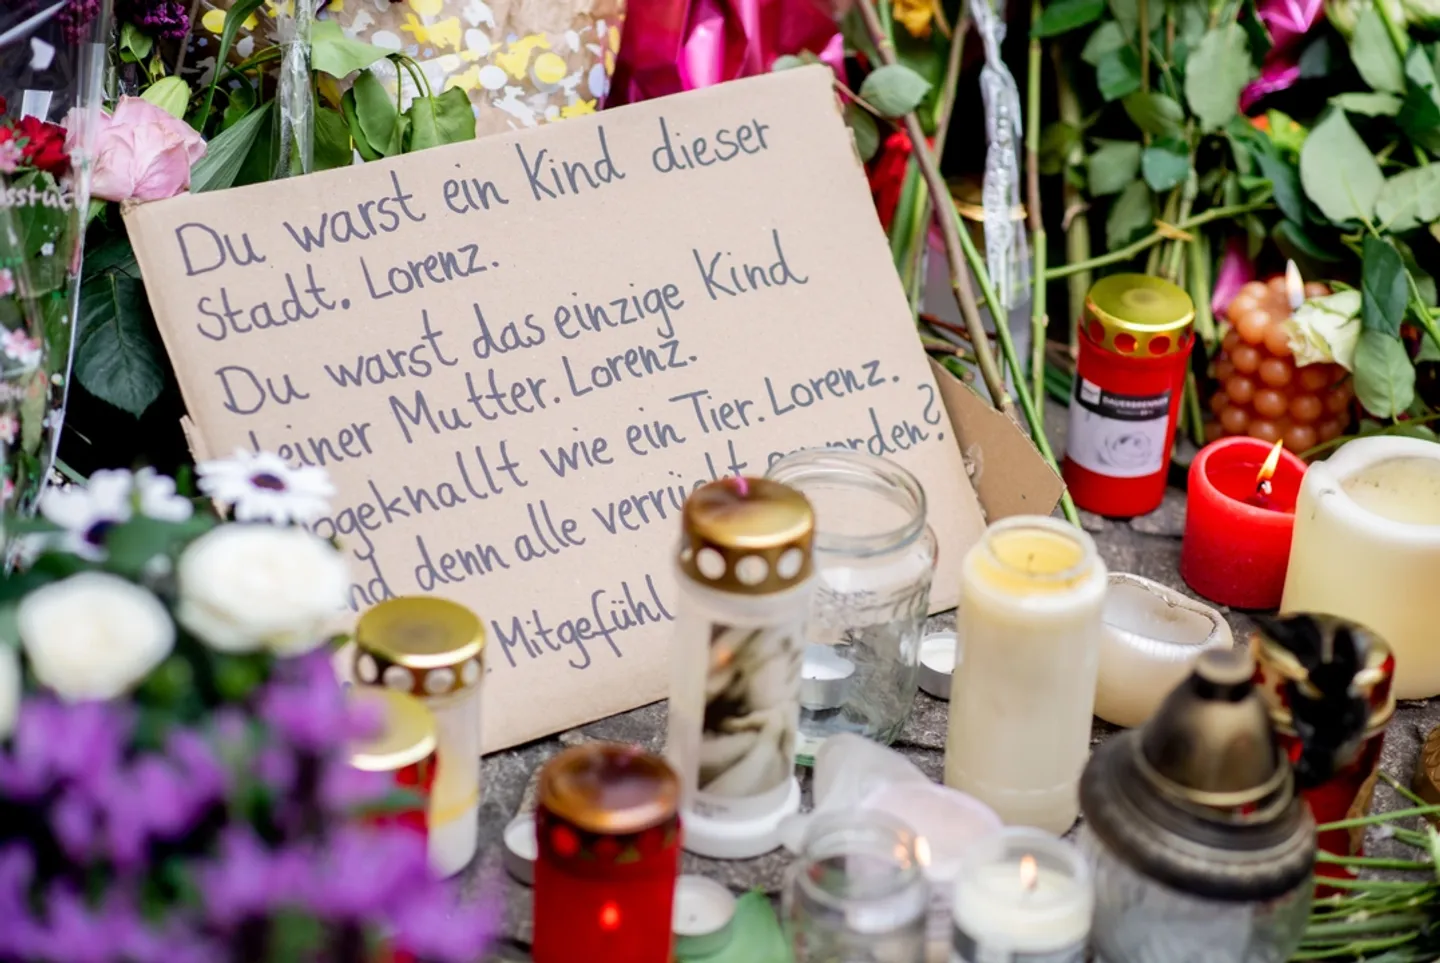 Du warst ein Kind dieser
Stadt. Lorenz.
Du warst das einzige Kind
deiner Mutter. Lorenz.
abgeknallt wie ein Tier. Lorenz.
denn alle verrückt geworden?
Mitgefühl
DAUERBRENNER